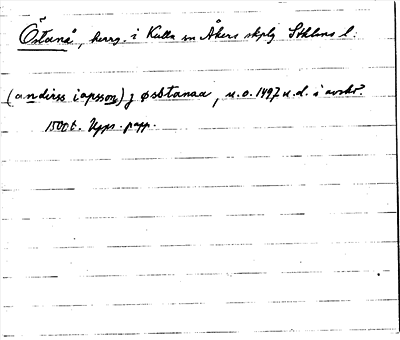 Östanå, herrg. i Kulla sn Åkers skplg Sthlms l:
(anderss iapsson) j østanaa, u. o. 1497 u. d. i avskr.
1500 t. Upps. papp.